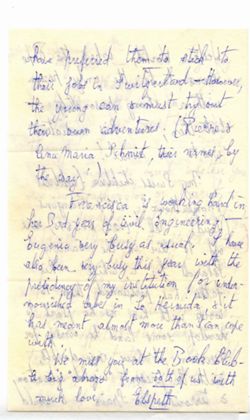 have preferred them to stick to
their jobs in Switzerland – However,
the young ones must try out
their own adventures! (Richard &
Anna Maria Schmist, their names, by
the way)
Francisca is working hard in
her 3rd year of Civil Engineering –
Eugenio very busy as usual. I have
also been very busy this year with the
presidency of my institution for under-
nourished babies in La Granja & it
has meant almost more than I can cope
with.
We miss you at the Book Club –
from both of us with
much love Elspeth